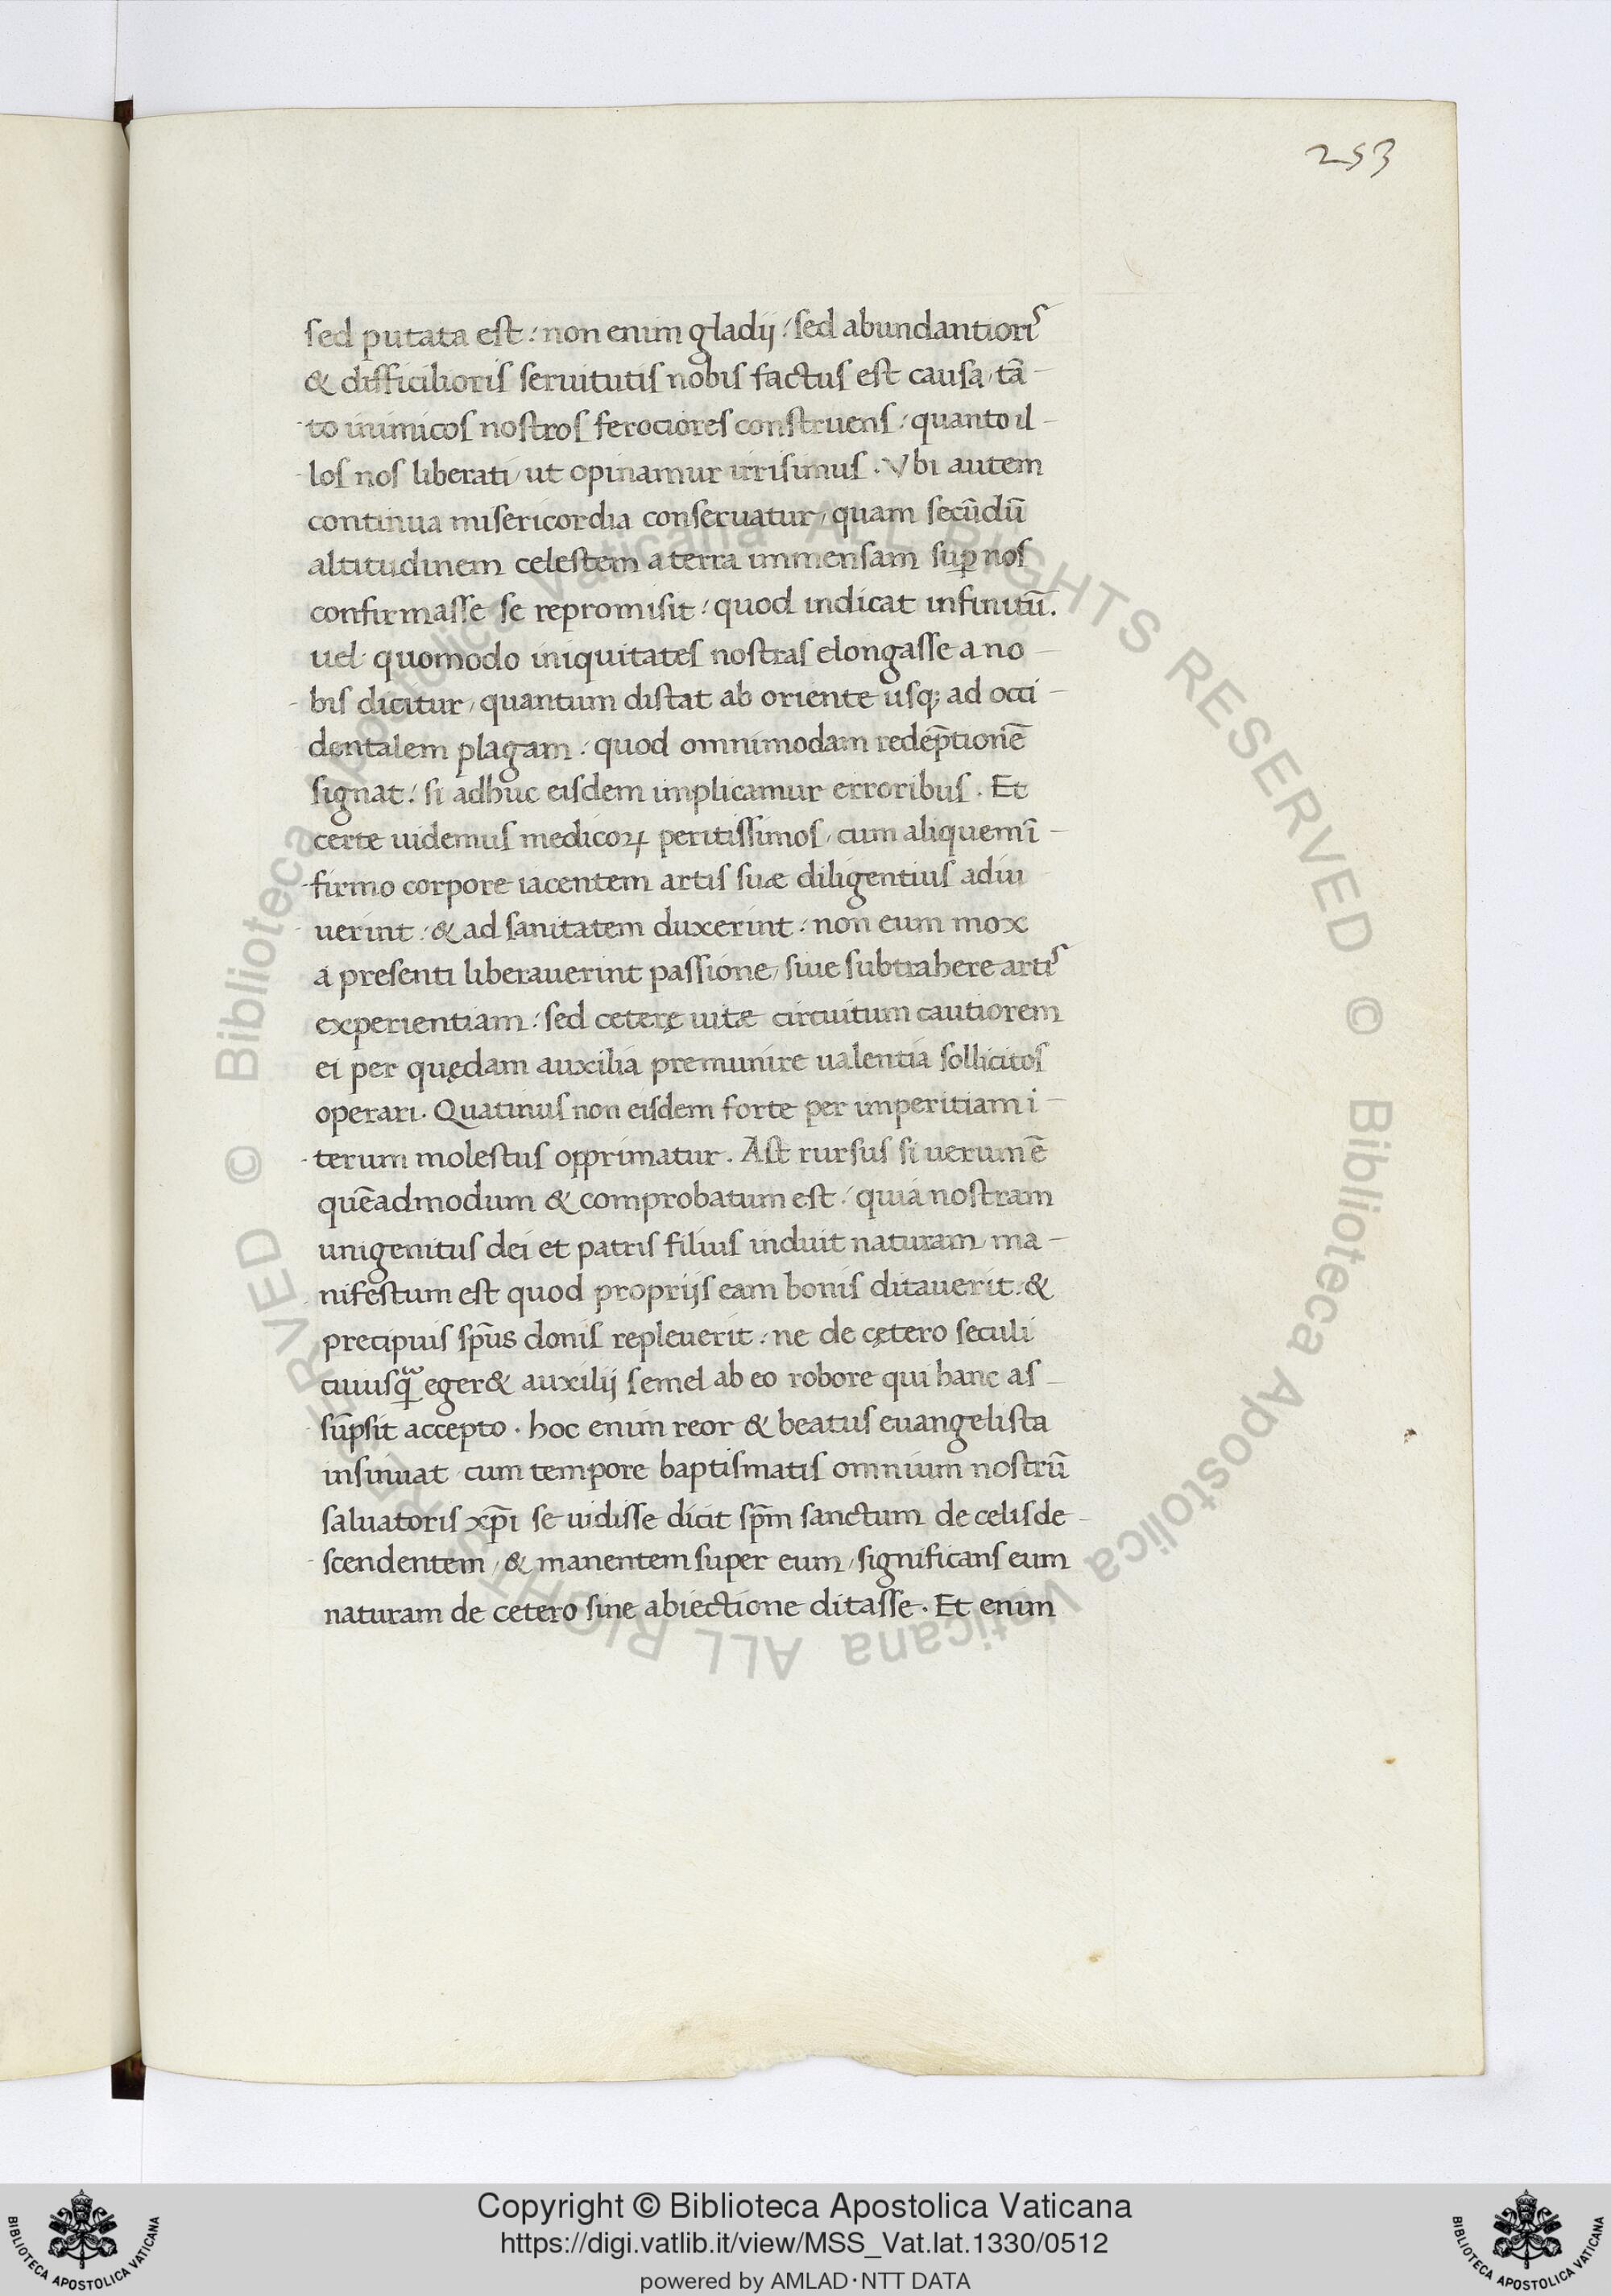 253
sed putata est: non enim gladij: sed abundantioris
& difficilioris seruitutis nobis factus est causa, tā-
to inimicos nostros ferociores construens: quanto il-
los nos liberati, ut opinamur irrisimus. Vbi autem
continua misericordia conseruatur, quam secūdū
altitudinem celestem a terra immensam suꝑ nos
confirmasse se repromisit: quod indicat infinitū.
uel quomodo iniquitates nostras elongasse a no-
bis dicitur, quantum distat ab oriente usq; ad occi-
dentalem plagam: quod omnimodam redēptionē
signat: si adhuc eisdem implicamur erroribus. Et
certe uidemus medicoꝝ peritissimos, cum aliquem ī-
firmo corpore iacentem artis suæ diligentius adiu
uerint: & ad sanitatem duxerint: non eum mox
a presenti liberauerint passione, siue subtrahere artis
experientiam: sed ceterę uitæ circuitum cautiorem
ei per quędam auxilia premunire ualentia sollicitos
operari. Quatinus non eisdem forte per imperitiam i-
terum molestus opprimatur. Ast rursus si uerum ē
quēadmodum & comprobatum est: quia nostram
unigenitus dei et patris filius induit naturam, ma-
nifestum est quod proprijs eam bonis ditauerit: &
precipuis sp̄us donis repleuerit: ne de cętero seculi
cuiusq̄ eger& auxilij semel ab eo robore qui hanc as-
sūpsit accepto. hoc enim reor & beatus euangelista
insinuat cum tempore baptismatis omnium nostrū
saluatoris xp̄i se uidisse dicit sp̄m sanctum de celis de-
scendentem, & manentem super eum, significans eum
naturam de cetero sine abiectione ditasse. Et enim
© Biblioteca Apostolica Vaticana ALL RIGHTS RESERVED © Biblioteca Apostolica Vaticana ALL RIGHTS RESERVED
Copyright © Biblioteca Apostolica Vaticana
https://digi.vatlib.it/view/MSS_Vat.lat.1330/0512
powered by AMLAD·NTT DATA
BIBLIOTECA APOSTOLICA VATICANA
BIBLIOTECA APOSTOLICA VATICANA